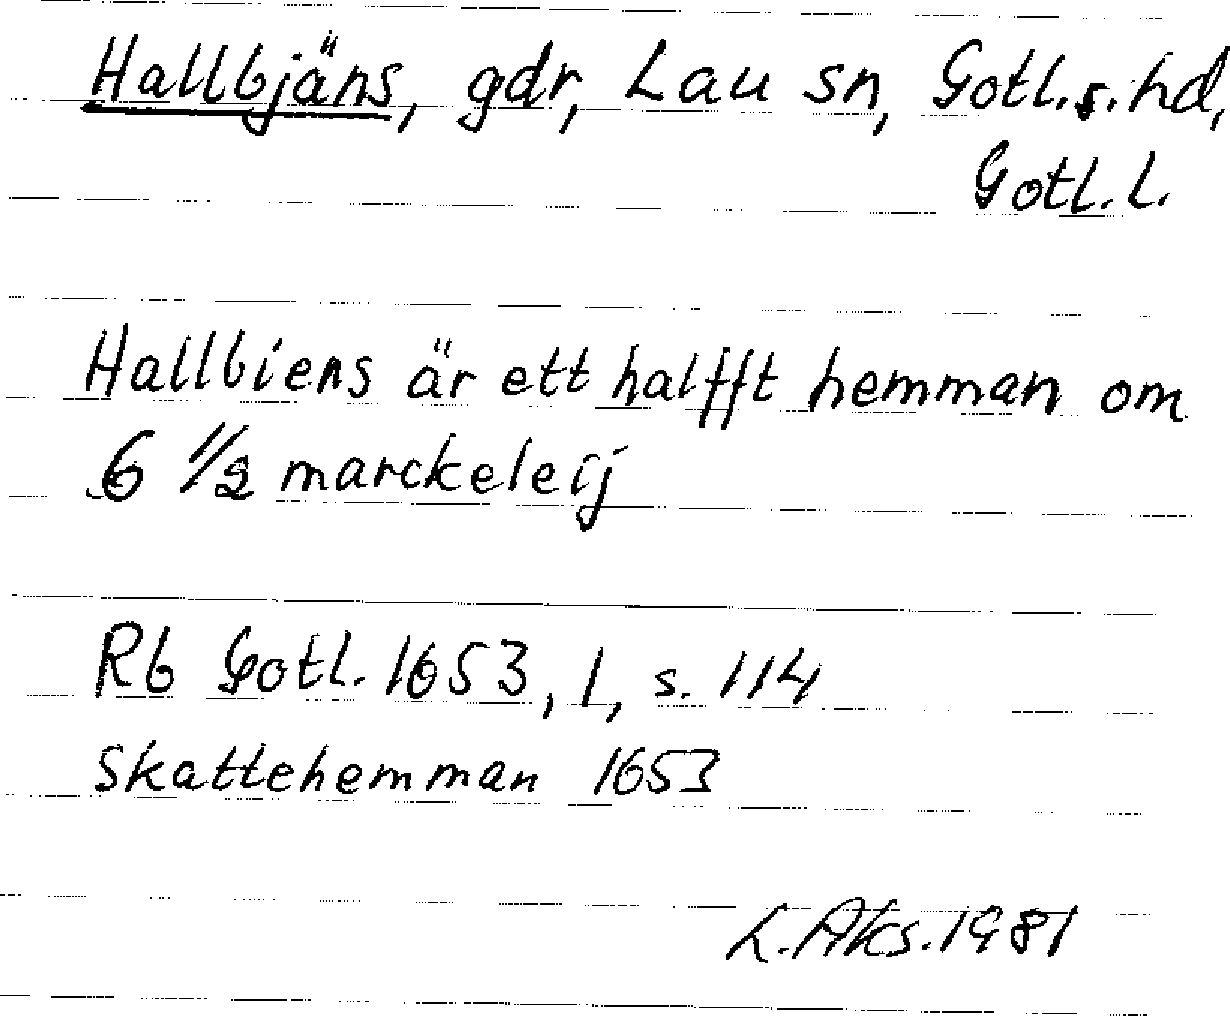 Hallbjäns, gdr, Lau sn, Gotl.s.hd,
Gotl.l.
Hallbiens är ett halfft hemman om
6 1/2 marckeleij
Rb Gotl. 1653, 1, s. 114
Skattehemman 1653
L.Aks.1981